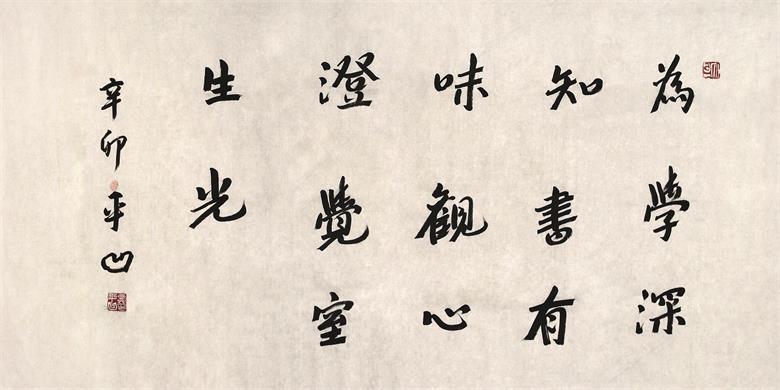 為學深
知書有
味觀心
澄覺室
生光
辛卯平凹